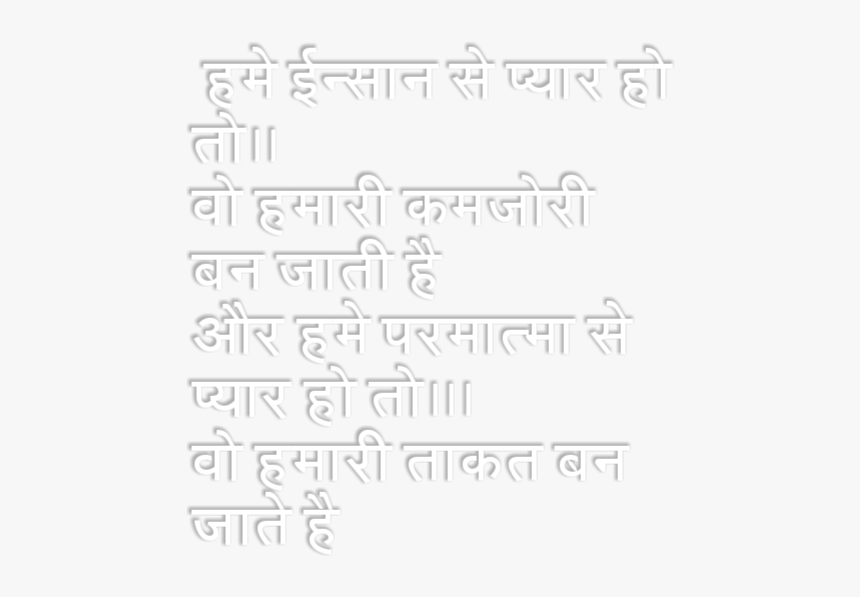 हमे ईन्सान से प्यार हो
तो॥
वो हमारी कमजोरी
बन जाती है
और हमे परमात्मा से
प्यार हो तो।॥
वो हमारी ताकत बन
जाते है